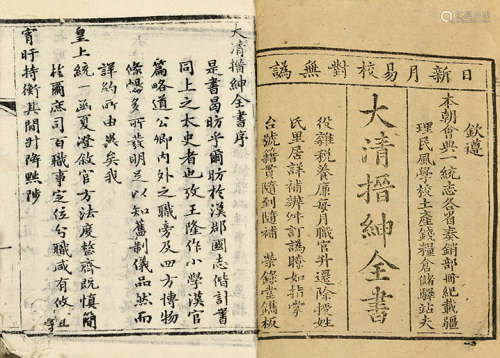 日新月易校對無譌
欽遵
本朝會典一統志各省奏銷部冊紀載疆
理民風學校土產錢糧倉儲驛站夫
大清搢紳全書
役雜稅養廉每月職官升遷除授姓
氏里居詳補辨舛訂譌時如指掌
台號籍貫隨到隨補 榮錄堂鐫板
大清搢紳全書序
是書曷昉乎爾昉於漢郡國志偕計書
同上之太史者也攷王隆作小學漢官
篇略道公卿內外之職旁及四方博物
條暢多所發明足以知舊制儀品然而
詳約所由異矣我
皇上統一函夏澄敘官方法度整齊既慎簡
於爾庶司百職事定位分職咸有攸且
宵旰持衡其間升降黜陟